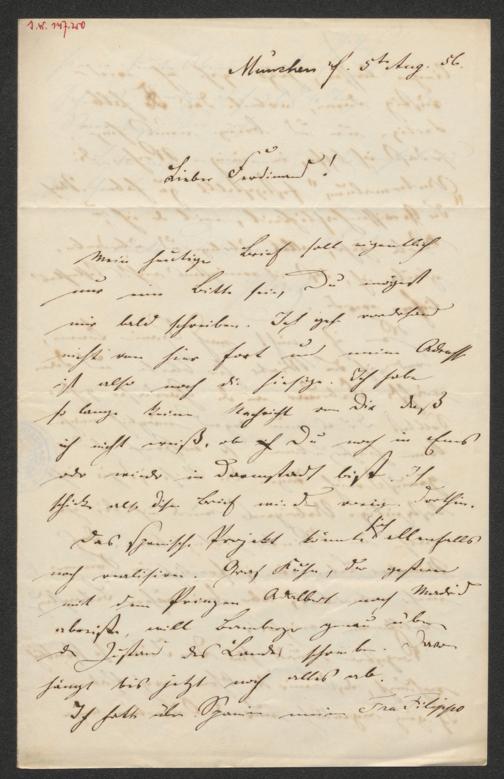 I.N. 147.250
München d. 5t Aug. 56.
Lieber Ferdinand!
Mein heutiger Brief soll eigentlich
nur eine Bitte sein, Du mögest
mir bald schreiben. Ich geh vorderhand
nicht von hier fort und meine Adresse
ist also noch die hiesige. Ich habe
so lange keine Nachricht von Dir daß
ich nicht weiß, ob Du noch in Ems
oder wieder in Darmstadt bist. Ich
schicke also den Brief dorthin.
Das spanische Projekt könnte sich allenfalls
noch realisiren. Graf Kuhn, der gestern
mit dem Prinzen Adalbert nach Madrid
abreiste, will genau über
den Zustand des Landes schreiben. Davon
hängt bis jetzt noch alles ab.
Ich hatte über Spanien meinen Fra Filippo